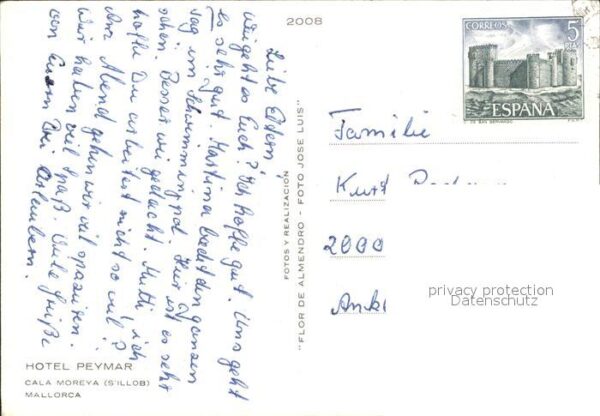 Liebe Eltern,
Wie geht es Euch? Ich hoffe gut. Uns geht
es sehr gut. Martina liegt den ganzen
Tag im Swimmingpool. Hier ist es sehr
schön. Besser wie gedacht. Mutti, ich
hoffe Du arbeitest nicht so viel?
Am Abend gehen wir viel spazieren.
Wir haben viel Spaß. Viele Grüße
von Euren drei Urlaubern.
2008
FOTOS Y REALIZACION
"FLOR DE ALMENDRO - FOTO JOSE LUIS"
CORREOS
5
PTAS
ESPAÑA
Familie
Kurt
2000
privacy protection
Datenschutz
HOTEL PEYMAR
CALA MOREYA (S'ILLOB)
MALLORCA